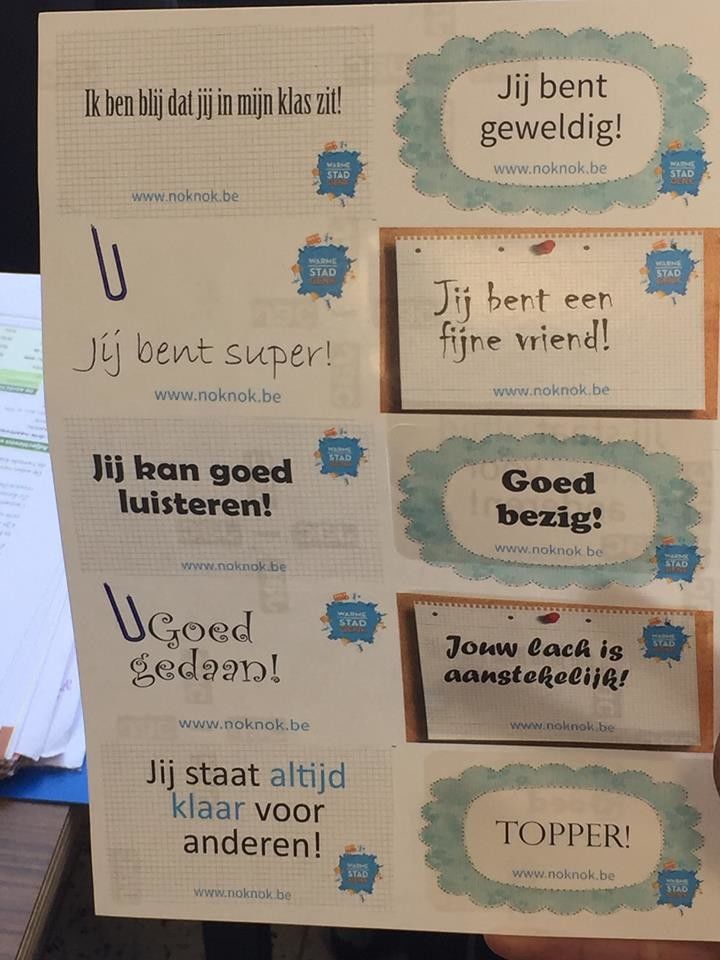 Ik ben blij dat jij in mijn klas zit!
WARME
STAD
GENK
www.noknok.be
Jij bent
geweldig!
www.noknok.be
WARME
STAD
GENK
WARME
STAD
GENK
Jij bent super!
www.noknok.be
WARME
STAD
GENK
Jij bent een
fijne vriend!
www.noknok.be
WARME
STAD
GENK
Jij kan goed
luisteren!
www.noknok.be
Goed
bezig!
www.noknok.be
WARME
STAD
GENK
WARME
STAD
GENK
Goed
gedaan!
www.noknok.be
WARME
STAD
GENK
Jouw lach is
aanstekelijk!
www.noknok.be
Jij staat altijd
klaar voor
anderen!
WARME
STAD
GENK
www.noknok.be
TOPPER!
www.noknok.be
WARME
STAD
GENK